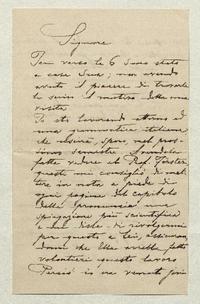 Signore
Ieri verso le 6 sono stato
a casa Sua; non avendo
avuto il piacere di trovarla
le scrivo il motivo della mia
visita.
Io sto lavorando attorno ad
una grammatica italiana
che uscirà, spero, nel pross
simo semestre. Avendola
fatta vedere al Prof. Förster
questi mi consigliò di met
tere in nota a piede di
ogni pagina del capitolo
della pronuncia una
spiegazione più scientifica
e mi disse di rivolgermi
per questo a Lei, assicuran
domi che Ella avrebbe fatto
volentieri questo lavoro
Perciò io era venuto